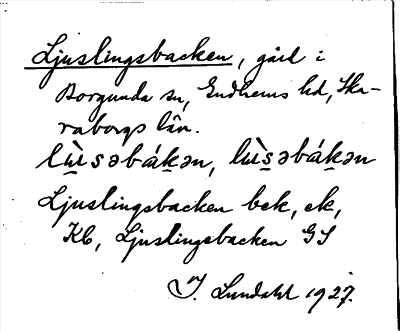 Ljuslingsbacken, gård i
Borgunda sn, Gudhems hd, Ska-
raborgs län.
lù̱səbák̠ən, lù̱s̠əbák̠ən
Ljuslingsbacken bek, ek,
Kb, Ljuslingsbacken GS
I. Lundahl 1927.